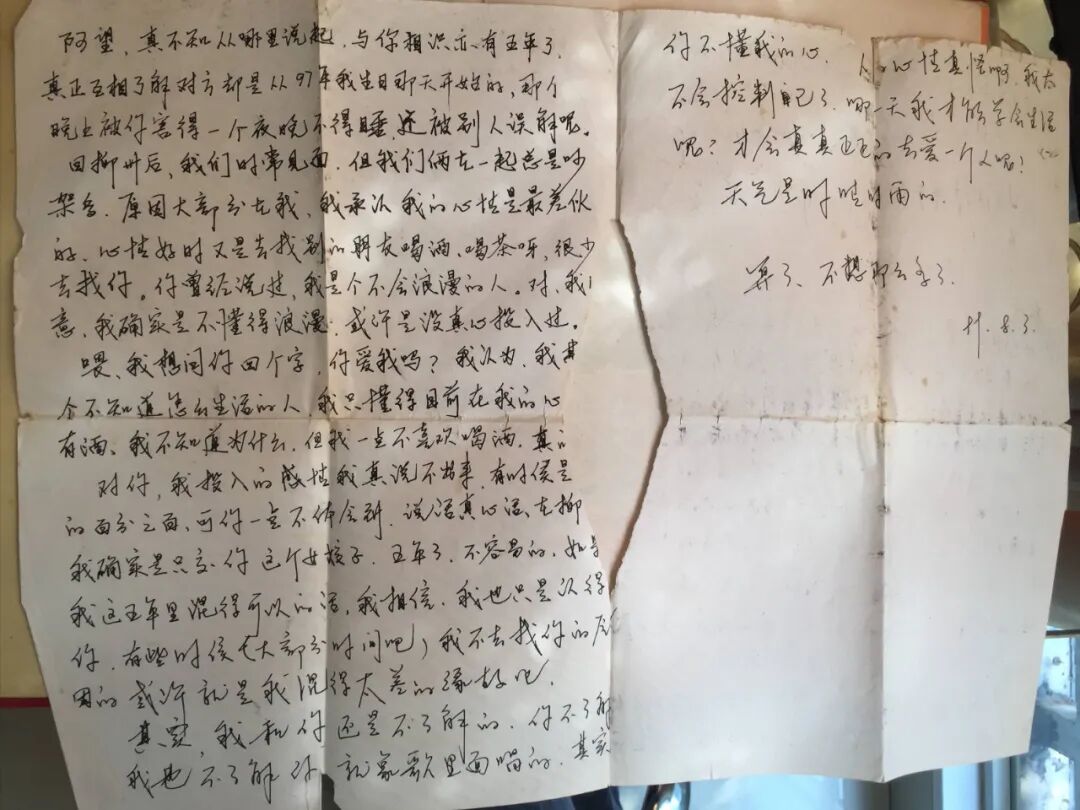 阿望，真不知从哪里说起，与你相识亦有五年了，
真正互相了解对方却是从97年我生日那天开始的，那个
晚上被你害得一个夜晚不得睡还被别人误解呢。
回柳州后，我们时常见面，但我们俩在一起总是吵
架多，原因大部分在我，我承认我的心情是最差伙
的、心情好时又是去找别的朋友喝酒、喝茶呀，很少
去找你。你曾经说过，我是个不会浪漫的人。对、我
意，我确实是不懂得浪漫，或许是没真心投入过。
喂、我想问你四个字，你爱我吗？我认为，我其
个不知道怎么生活的人，我只懂得目前在我的心
有酒、我不知道为什么，但我一点不喜欢喝酒，真的
对你，我投入的感情我真说不出来，有时候是
的百分之百、可你一点不体会到，说句真心话、在柳
我确实是只交你这个女孩子，五年了，不容易的，如果
我这五年里混得可以的话，我相信，我也只是认得
你，有些时候（大部分时间吧）我不去找你的原
因的或许就是我混得太差的缘故吧，
其实，我和你还是不了解的，你不了解
我也不了解你，就象歌里面唱的，其实
你不懂我的心
人的心情真怪啊，我太
不会控制自己了，哪一天我才能学会生活
呢？才会真真正正的去爱一个人呢？
天气是时晴时雨的，
算了、不想那么多了，
8.3.